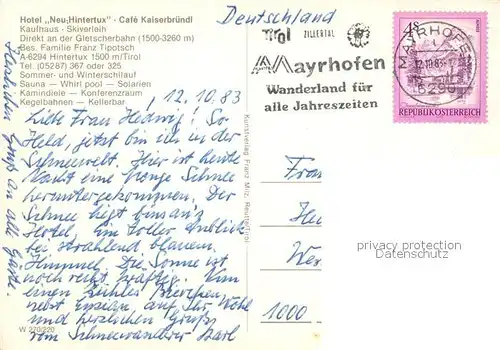 Hotel „Neu-Hintertux" - Café Kaiserbründl
Kaufhaus - Skiverleih
Direkt an der Gletscherbahn (1500-3260 m)
Bes. Familie Franz Tipotsch
A-6294 Hintertux 1500 m/Tirol
Tel. (05287) 367 oder 325
Sommer- und Winterschilauf
Sauna — Whirl pool — Solarien
Kamindiele — Konferenzraum
Kegelbahnen — Kellerbar
Deutschland
Tirol ZILLERTAL
Mayrhofen
Wanderland für
alle Jahreszeiten
4s
MAYRHOFEN
12.10.83
6290
REPUBLIK ÖSTERREICH
12.10.83
Liebe Frau Hedwig! So
Held, jetzt bin ich in der
Schneewelt. Hier ist heute
Nacht eine Menge Schnee
heruntergekommen. Der
Schnee liegt bis ans
Hotel. Ein toller Anblick
bei strahlend blauem
Himmel. Die Sonne ist
noch recht kräftig. Nun
einen kühles Bierchen,
nebst Enzian, auf Ihr Wohl
und herzlichen Gruß
vom Schneewanderer Karl
Gruß an alle Gäste.
Kunstverlag Franz Milz, Reutte/Tirol
Frau
Wer
1000
privacy protection
Datenschutz
W 270/220